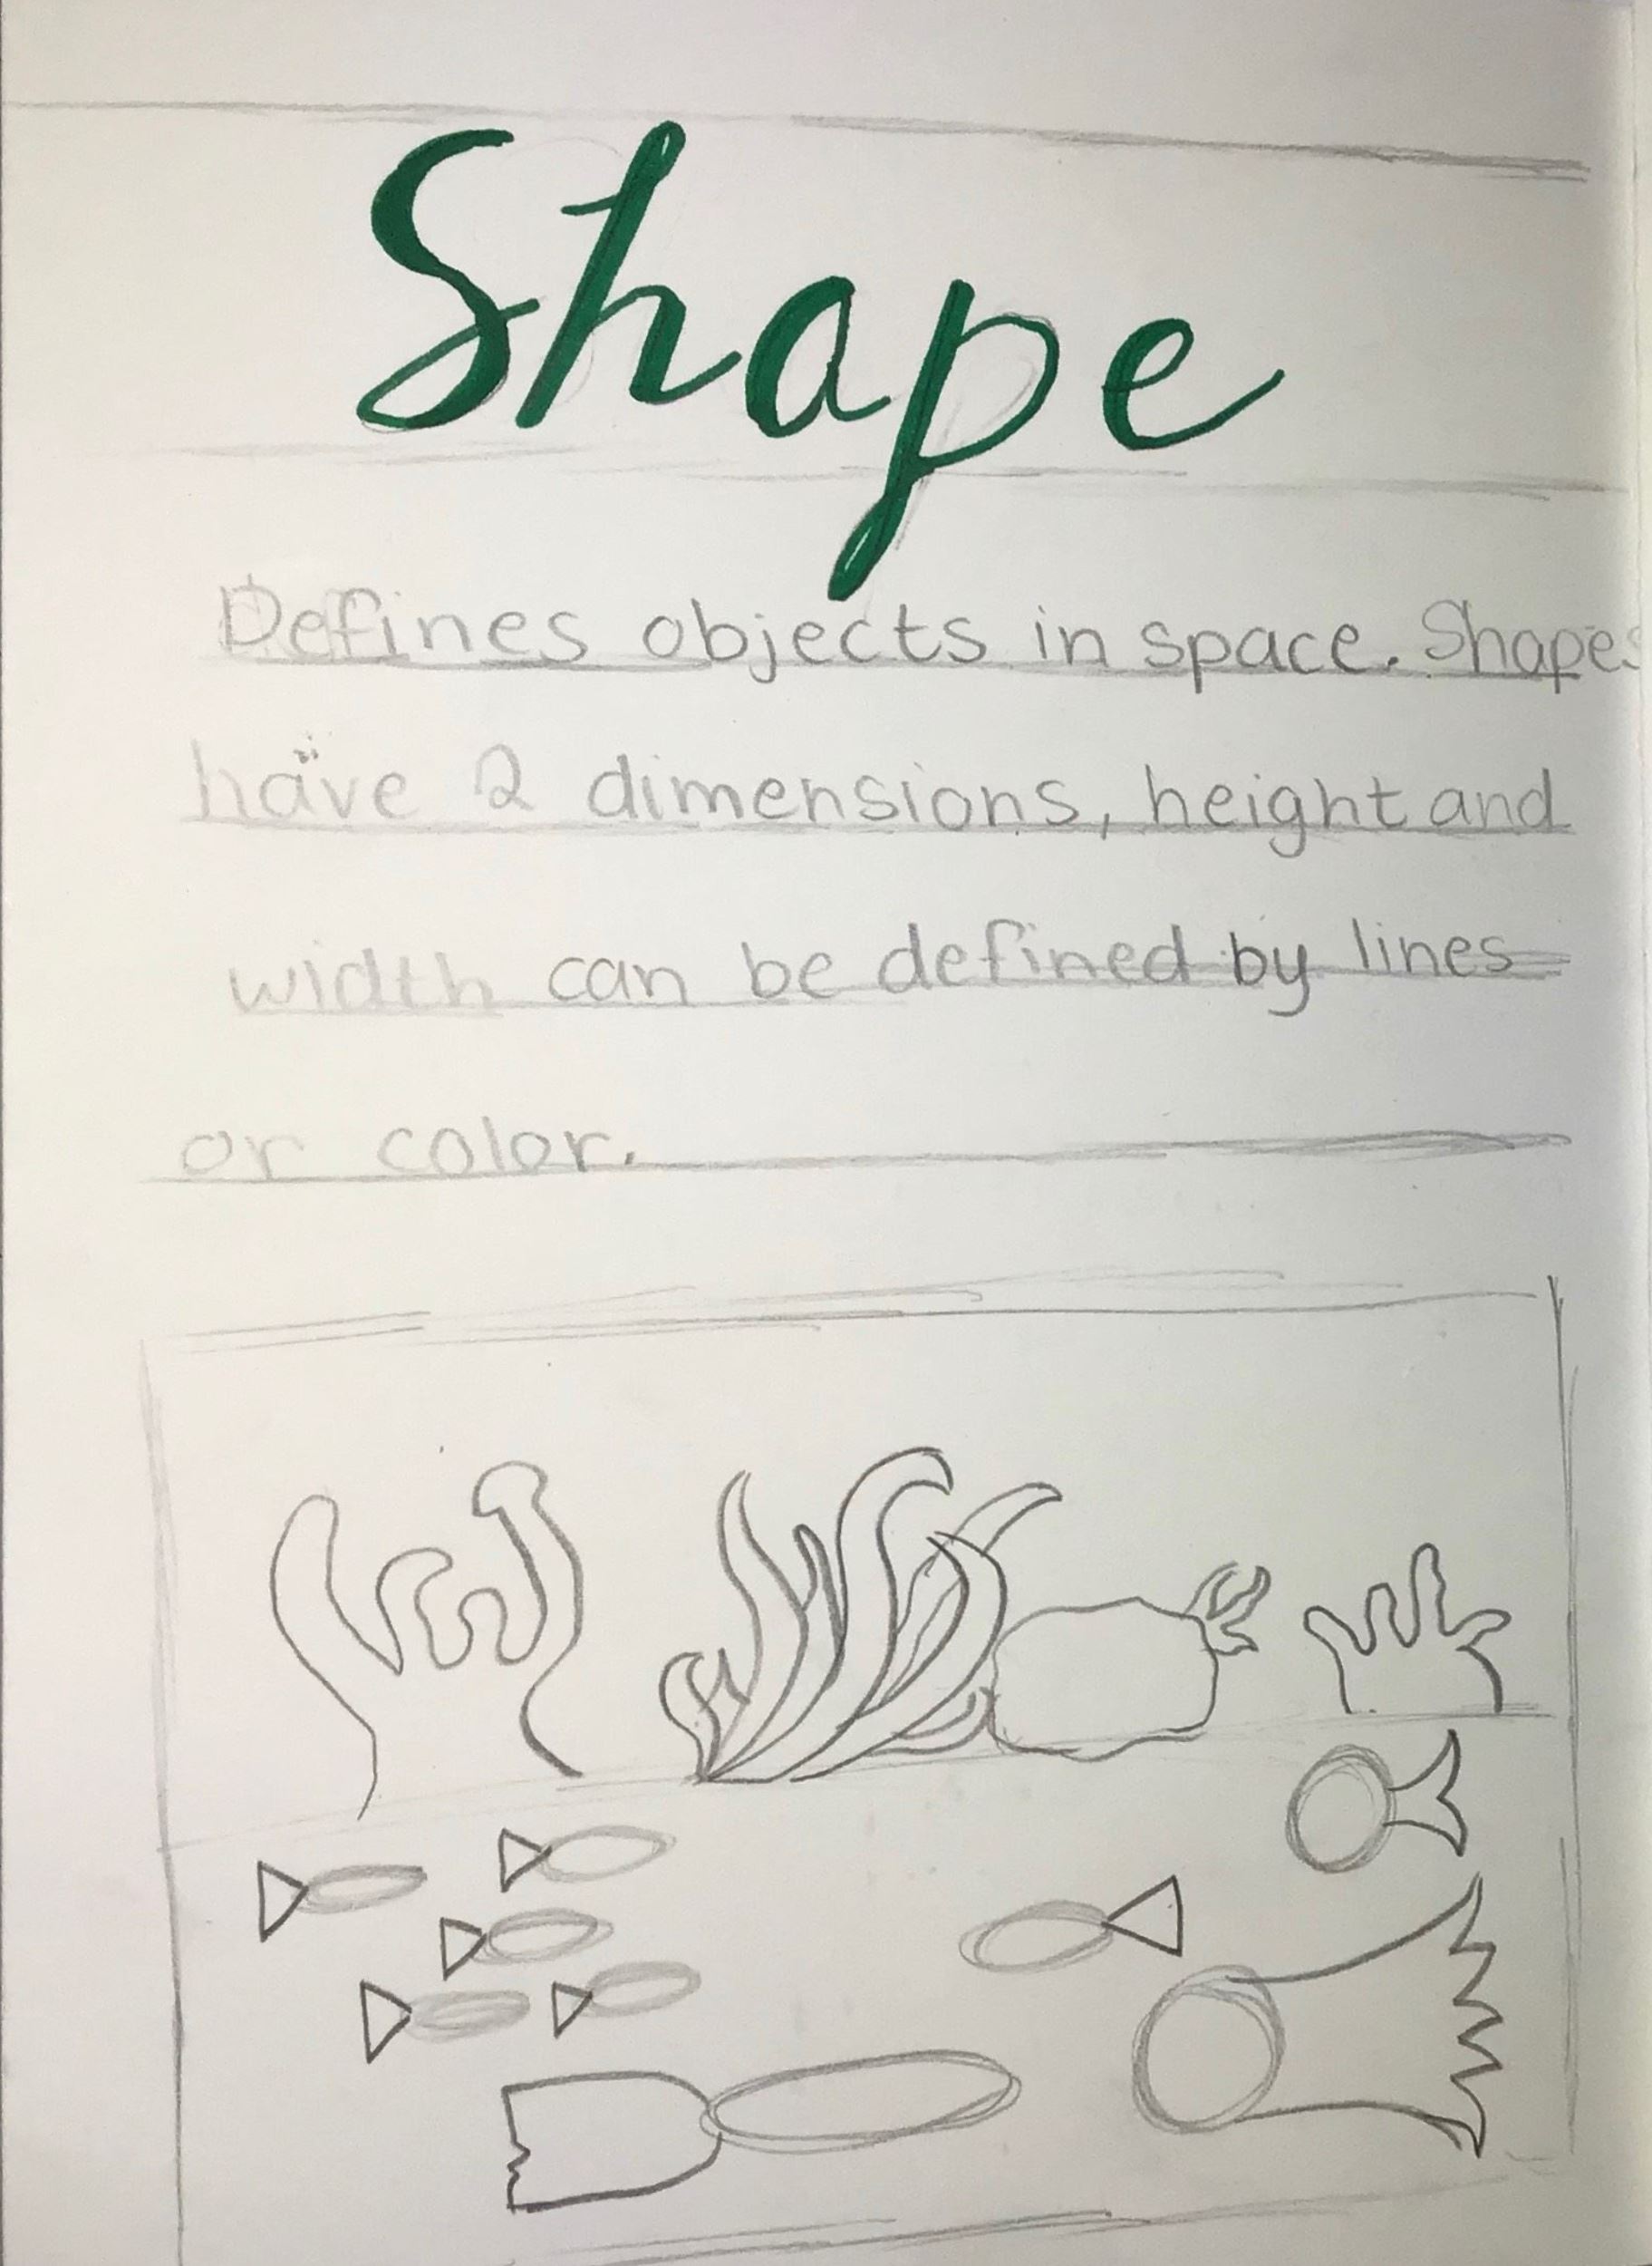 Shape
Defines objects in space. Shapes
have 2 dimensions, height and
width can be defined by lines
or color.